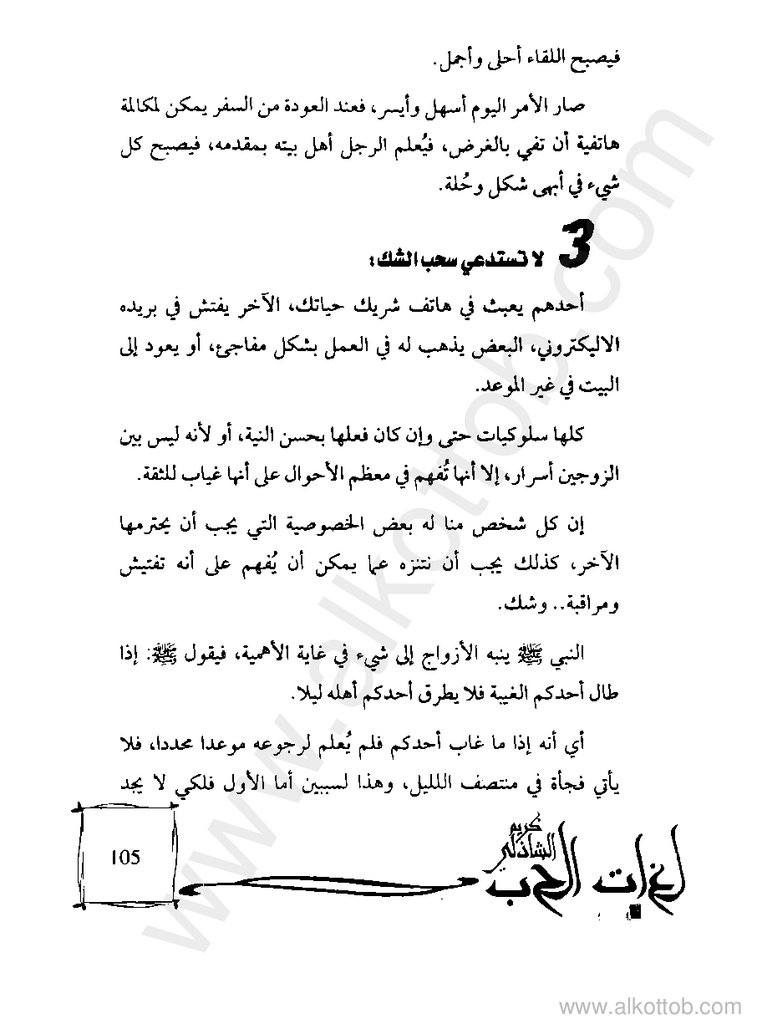 فيصبح اللقاء أحلى وأجمل.
صار الأمر اليوم أسهل وأيسر، فعند العودة من السفر يمكن لمكالمة
هاتفية أن تفي بالغرض، فيُعلم الرجل أهل بيته بمقدمه، فيصبح كل
شيء في أبهى شكل وحُلة.
3 لا تستدعي سحب الشك:
أحدهم يعبث في هاتف شريك حياتك، الآخر يفتش في بريده
الاليكتروني، البعض يذهب له في العمل بشكل مفاجئ، أو يعود إلى
البيت في غير الموعد.
كلها سلوكيات حتى وإن كان فعلها بحسن النية، أو لأنه ليس بين
الزوجين أسرار، إلا أنها تُفهم في معظم الأحوال على أنها غياب للثقة.
إن كل شخص منا له بعض الخصوصية التي يجب أن يحترمها
الآخر، كذلك يجب أن نتنزه عما يمكن أن يُفهم على أنه تفتيش
ومراقبة.. وشك.
النبي ﷺ ينبه الأزواج إلى شيء في غاية الأهمية، فيقول ﷺ: إذا
طال أحدكم الغيبة فلا يطرق أحدكم أهله ليلا.
أي أنه إذا ما غاب أحدكم فلم يُعلم لرجوعه موعدا محددا، فلا
يأتي فجأة في منتصف الللیل، وهذا لسببين أما الأول فلكي لا يجد
كريم
الشاذلي
لغات الحب
105
www.alkottob.com
www.alkottob.com